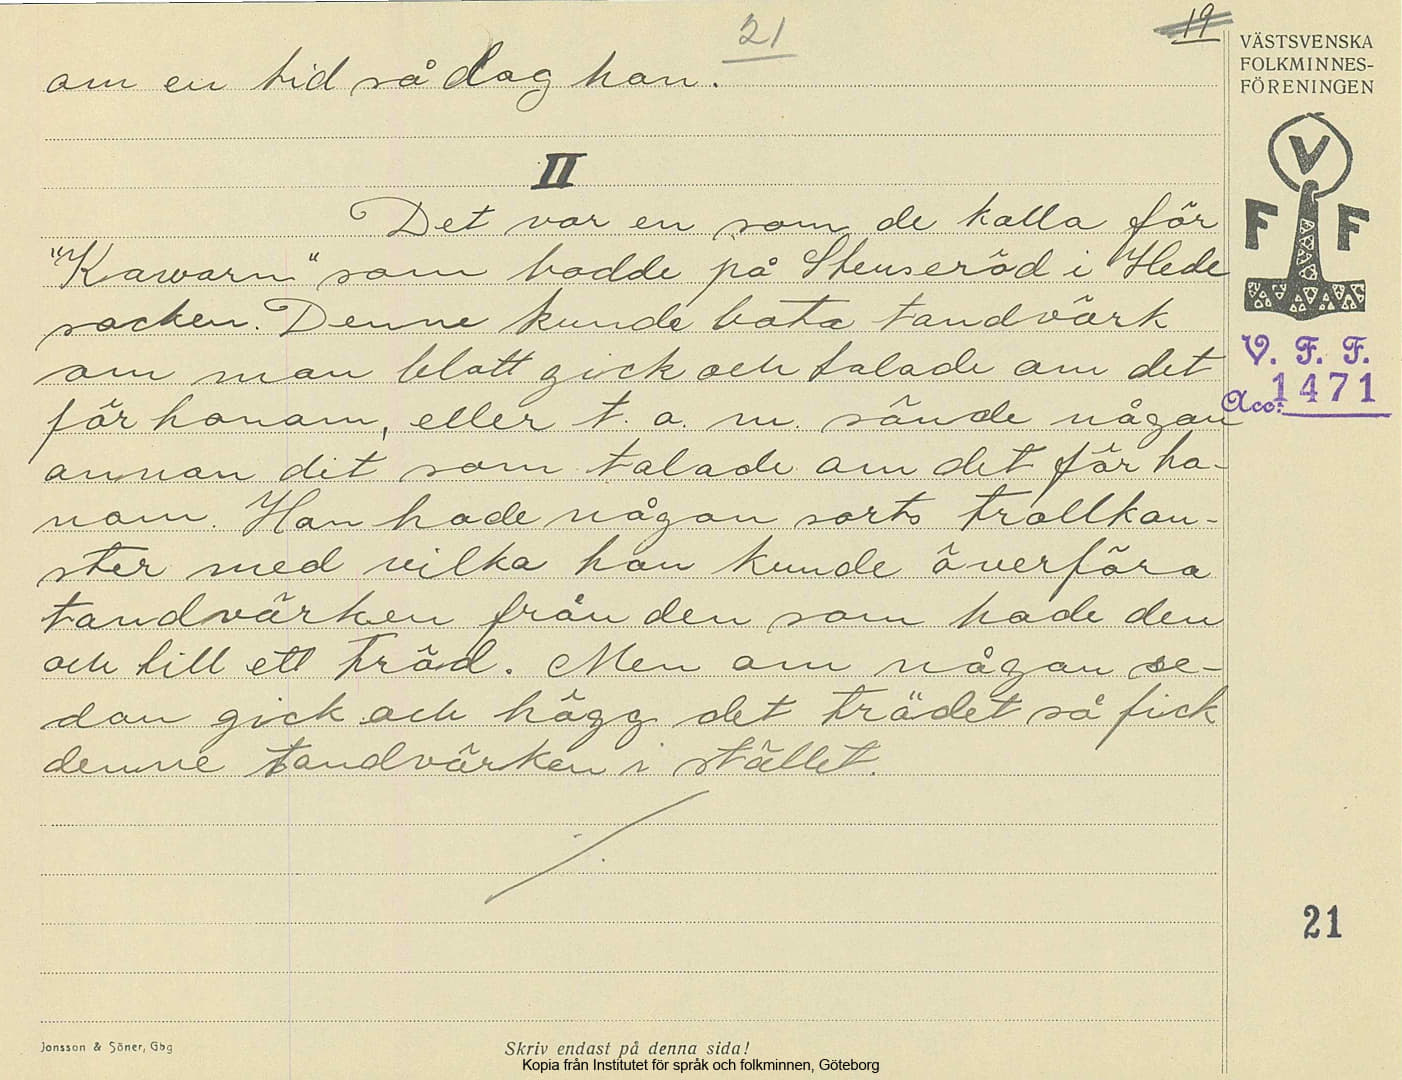 21
19
om en tid så dog han.
II
Det var en som de kalla för
"Kawarn" som bodde på Stenseröd i Hede
socken. Denne kunde bota tandvärk
om man blott gick och talade om det
för honom, eller t. o. m. sände någon
annan dit som talade om det för ho-
nom. Han hade någon sorts trollkon-
ster med vilka han kunde överföra
tandvärken från den som hade den
och till ett träd. Men om någon se-
dan gick och högg det trädet så fick
denne tandvärken i stället.
VÄSTSVENSKA
FOLKMINNES-
FÖRENINGEN
V
F F
V. F. F.
Acc: 1471
21
Jonsson & Söner, Gbg
Skriv endast på denna sida!
Kopia från Institutet för språk och folkminnen, Göteborg